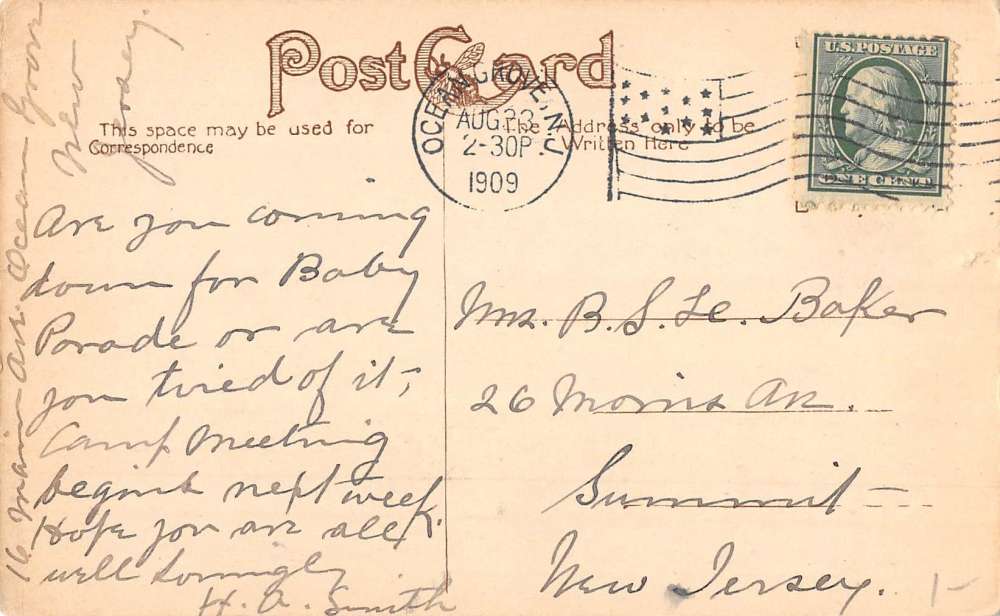 Post Card
This space may be used for
Correspondence
The Address only to be
Written Here
OCEAN GROVE, N.J.
AUG 23
2-30P
1909
U.S. POSTAGE
ONE CENT
16 Main Ave. Ocean Grove
New
Jersey.
Are you coming
down for Baby
Parade or are
you tired of it,
Camp Meeting
begins next week.
Hope you are all
well Lovingly
H. A. Smith
Mrs. B. S. Baker
26 Morris Ave.
Summit
New Jersey.
1-